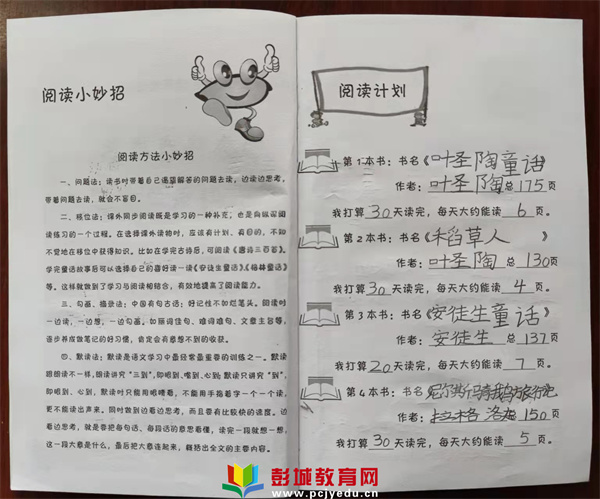 阅读小妙招
阅读方法小妙招
一、问题法：读书时带着自己遇需解答的问题去读，边读边思考，
带着问题去读，就会不盲目。
二、移位法：课外同步阅读既是学习的一种补充，也是向纵深阅
读练习的一个过程。在选择课外读物时，应该有计划、有目的，不知
不觉地在移位中获得知识。比如在学完古诗后，可阅读《唐诗三百首》，
学完童话故事后可以选择自己的喜好读一读《安徒生童话》、《格林童话》
等。这样就做到了学习与阅读相结合，有效地提高了阅读能力。
三、勾画、摘录法：中国有句古话：好记性不如烂笔头。阅读时
一边读，一边想，一边勾画。如原词佳句、难词难句、文章主旨等，
逐步养成做笔记的好习惯，肯定会有意想不到的收获。
四、默读法：默读是语文学习中最经常最重要的训练之一。默读
跟朗读不一样，朗读讲究“三到”，即眼到、嘴到、心到；默读只讲究“到”，
即眼到、心到，默读时只能用眼睛看，不能用手指着字一个一个读，
更不能读出声来，同时做到边看边思考，而且要有比较快的速度。边
看边思考，就是要把每句话、每段话的意思看懂，读完一段就想一想，
这一段大意是什么，最后把大意连起来，概括出全文的主要内容。
阅读计划
第1本书：书名《叶圣陶童话》
作者：叶圣陶 总175页
我打算30天读完，每天大约能读6页。
第2本书：书名《稻草人》
作者：叶圣陶 总130页
我打算30天读完，每天大约能读4页。
第3本书：书名《安徒生童话》
作者：安徒生 总137页
我打算20天读完，每天大约能读7页。
第4本书：书名《尼尔斯骑鹅旅行记
作者：拉格洛 150页
我打算30天读完，每天大约能读5页。
彭城教育网
www.pcjyedu.cn